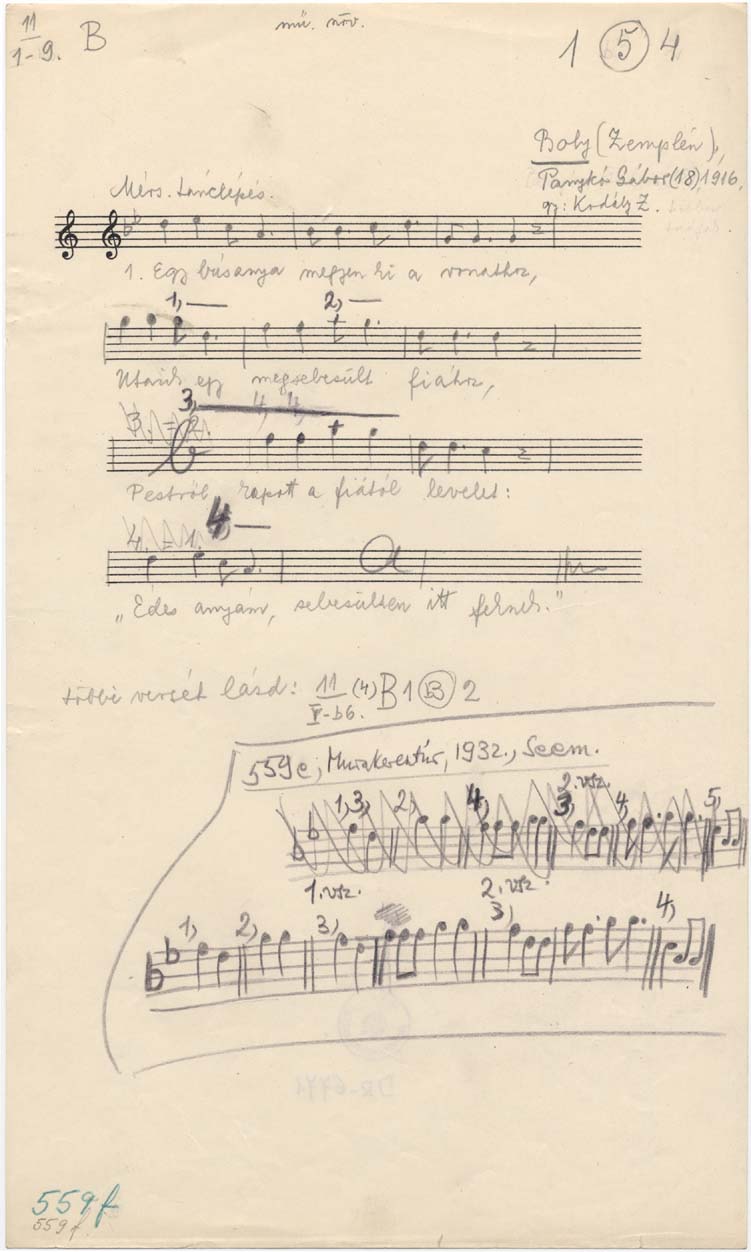 11
1-9. B
mű. növ.
1 (5) 4
Boly (Zemplén),
Pamykó Gábor (18) 1916,
gy: Kodály Z.
Mérs. tánclépés.
1. Egy búsanya megyen ki a vonathoz,
1,
2,
Utazik egy megsebesült fiához,
3,
4, 4,
3. = 2.
Pestről kapott a fiától levelet:
4. = 1.
4
„Édes anyám, sebesülten itt fekszek."
többi versét lásd: 11 (4) B 1 (B) 2
V-b6.
559e, Murakeresztúr, 1932., Seem.
1, 3, 2, 4, 2. vsz. 3, 4, 5,
1. vsz. 2. vsz.
1, 2, 3, 3, 4,
559f
559f